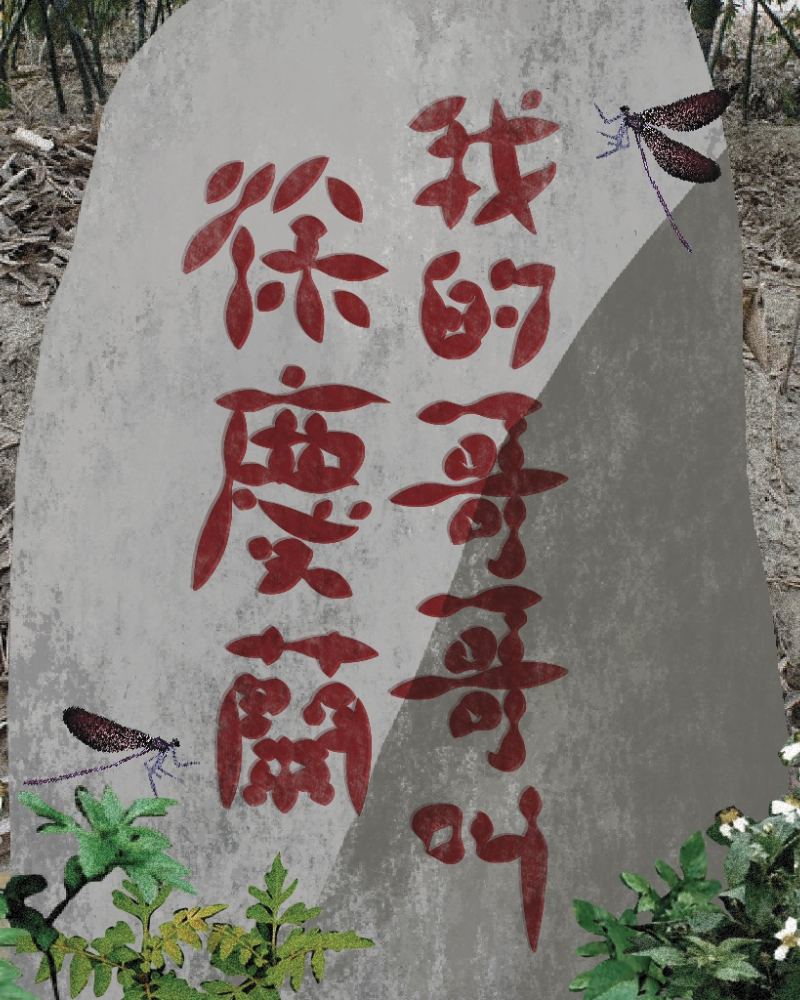 我的哥哥哥叫
徐慶蘭